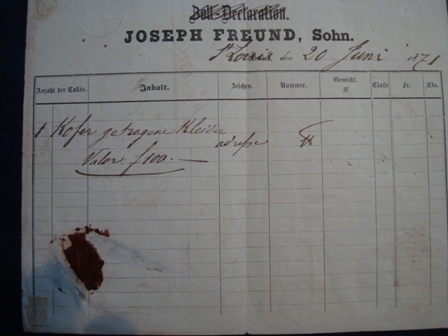 Zoll-Declaration.
JOSEPH FREUND, Sohn.
St Louis den 20 Juni 1871
Anzahl der Collis. Inhalt. Zeichen. Nummer. Gewicht. ℔ Classe Fr. Cts.
1 Kofer getragene Kleider adresse
Valor f100.—